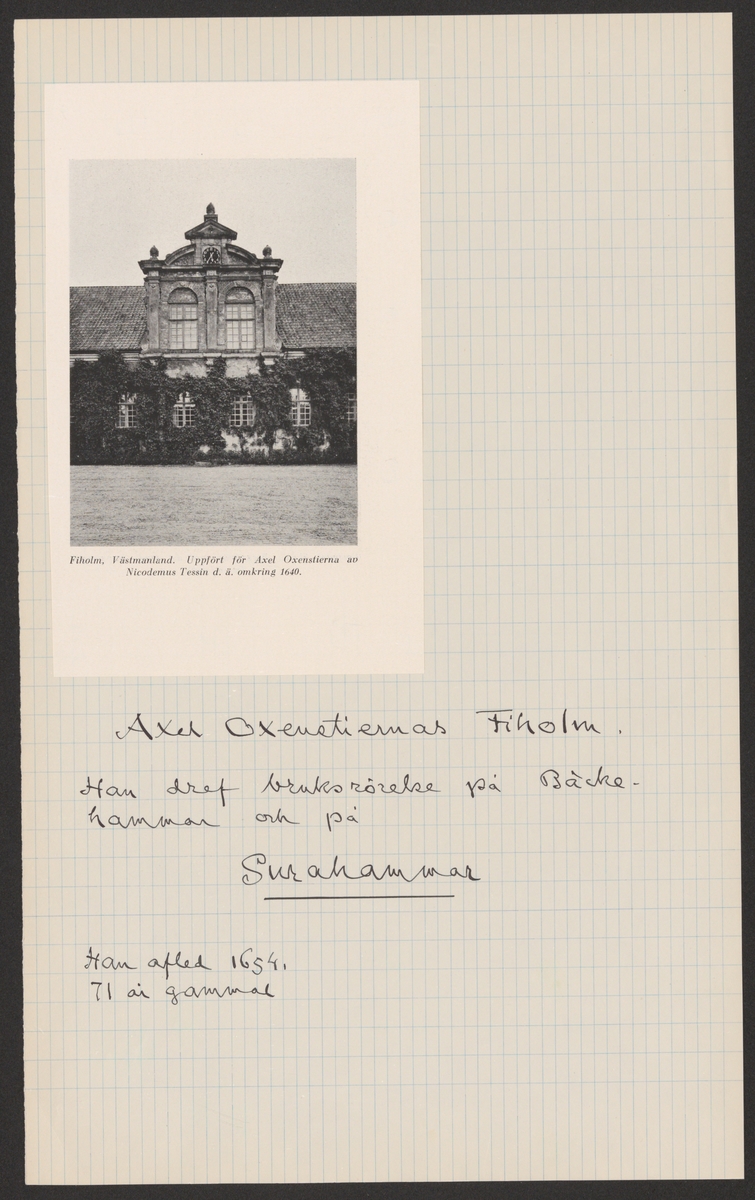 Fiholm, Västmanland. Uppfört för Axel Oxenstierna av
Nicodemus Tessin d. ä. omkring 1640.
Axel Oxenstiernas Fiholm.
Han dref bruksrörelse på Bäcke-
hammar och på
Surahammar
Han afled 1654.
71 år gammal